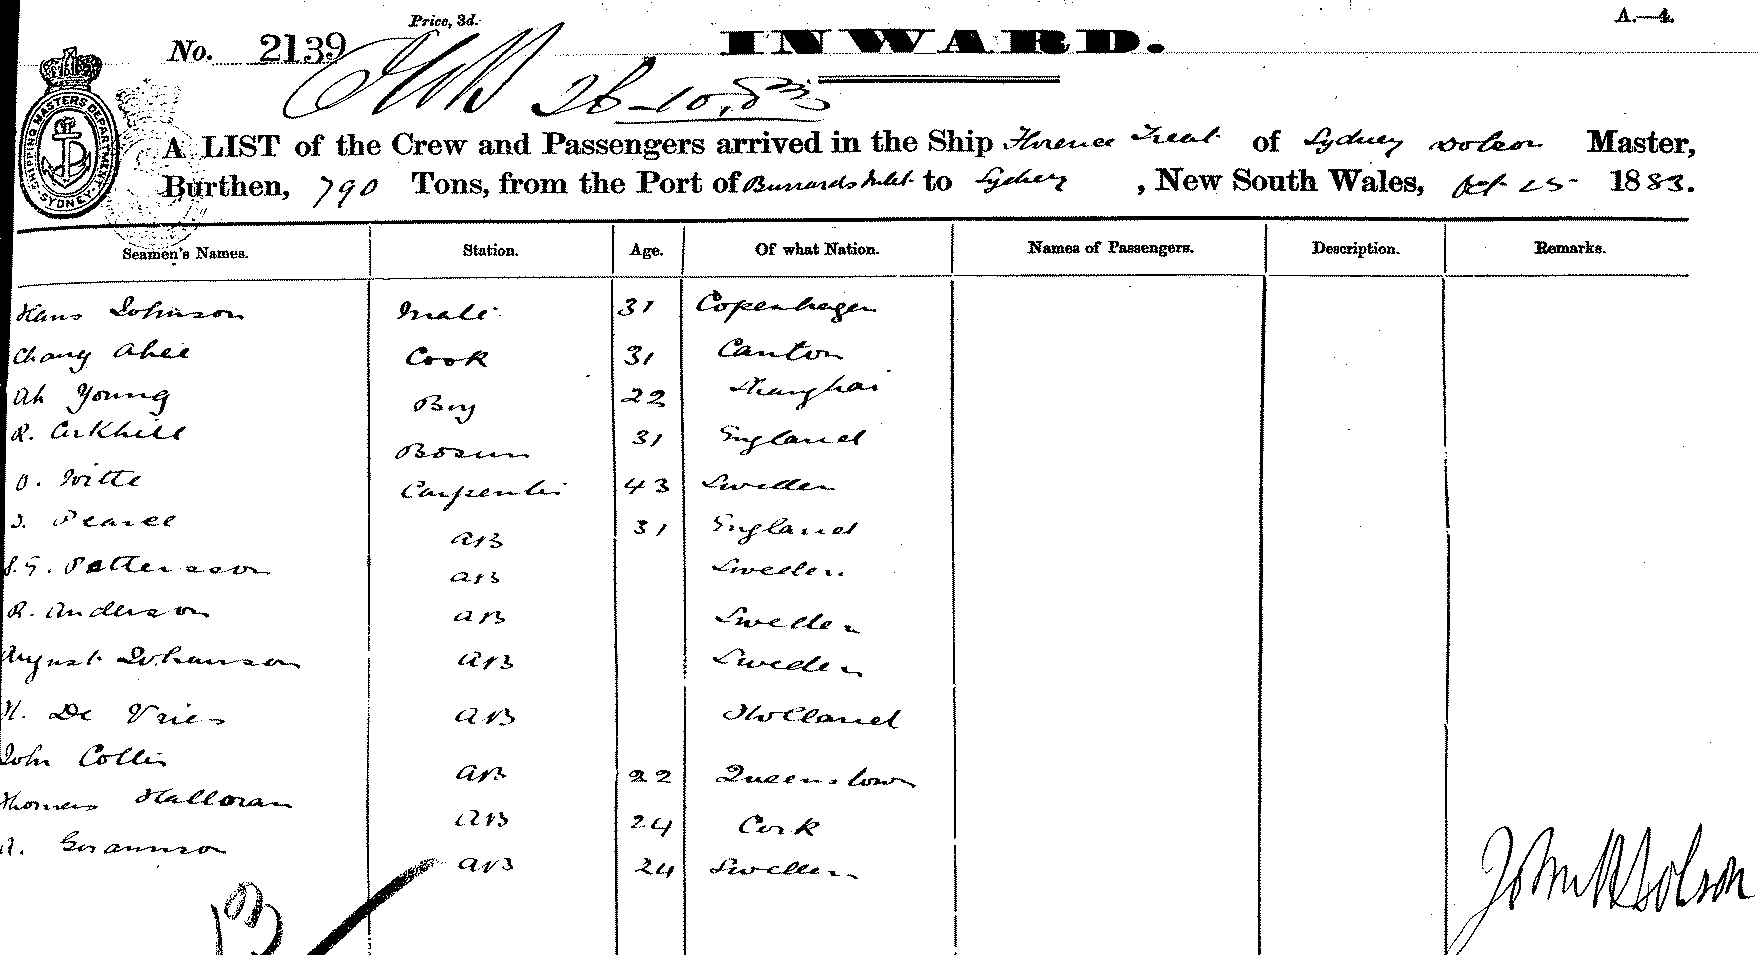 Price, 3d.
A.—4.
No. 2139
INWARD.
26-10.83
SHIPPING MASTERS DEPARTMENT. SYDNEY
A LIST of the Crew and Passengers arrived in the Ship Florence Treat of Sydney Dolson Master,
Burthen, 790 Tons, from the Port of Burrards Inlet to Sydney, New South Wales, Oct 25 1883.
Seamen's Names. Station. Age. Of what Nation. Names of Passengers. Description. Remarks.
Hans Johnson Mate 31 Copenhagen
Chang Ahee Cook 31 Canton
Ah Young Boy 22 Shanghai
R. Arkhill Bosun 31 England
O. Witte Carpenter 43 Sweden
J. Pearce AB 31 England
Pattersson AB Sweden
R. Anderson AB Sweden
August Johanson AB Sweden
H. De Vries AB Holland
John Collin AB 22 Queenstown
Thomas Halloran AB 24 Cork
A. Gorannson AB 24 Sweden
13
John R Dolson